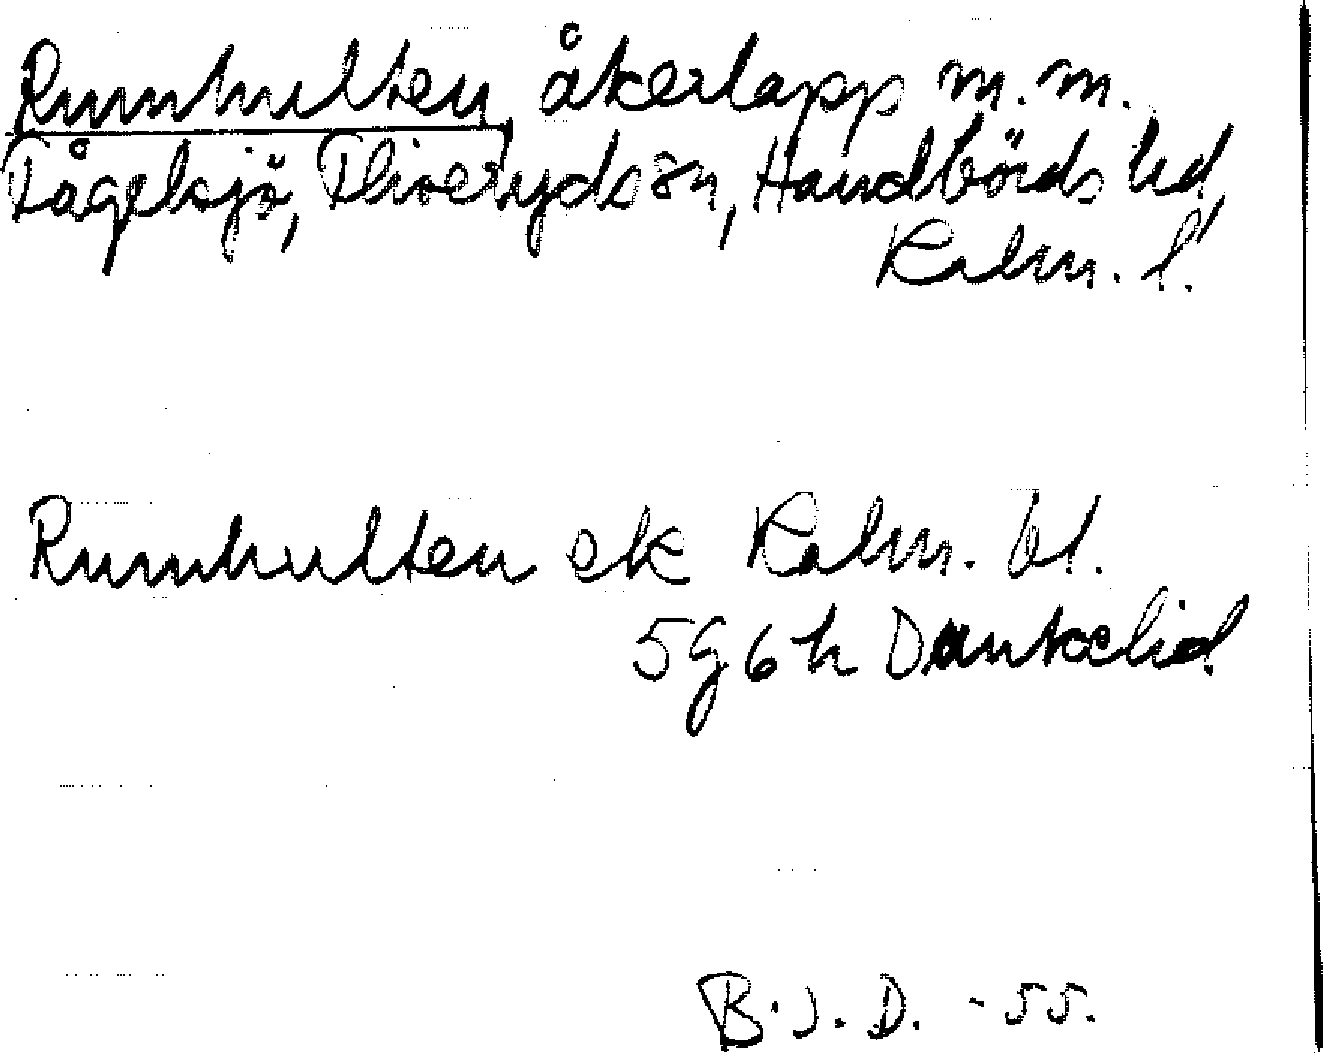 Rumhulten, åkerlapp m.m.
Fågelsjö, Fliserydssn, Handbörds hd,
Kalm. l.
Rumhulten ek Kalm. bl.
5g6h Dunkelid
B.J.D. -55.